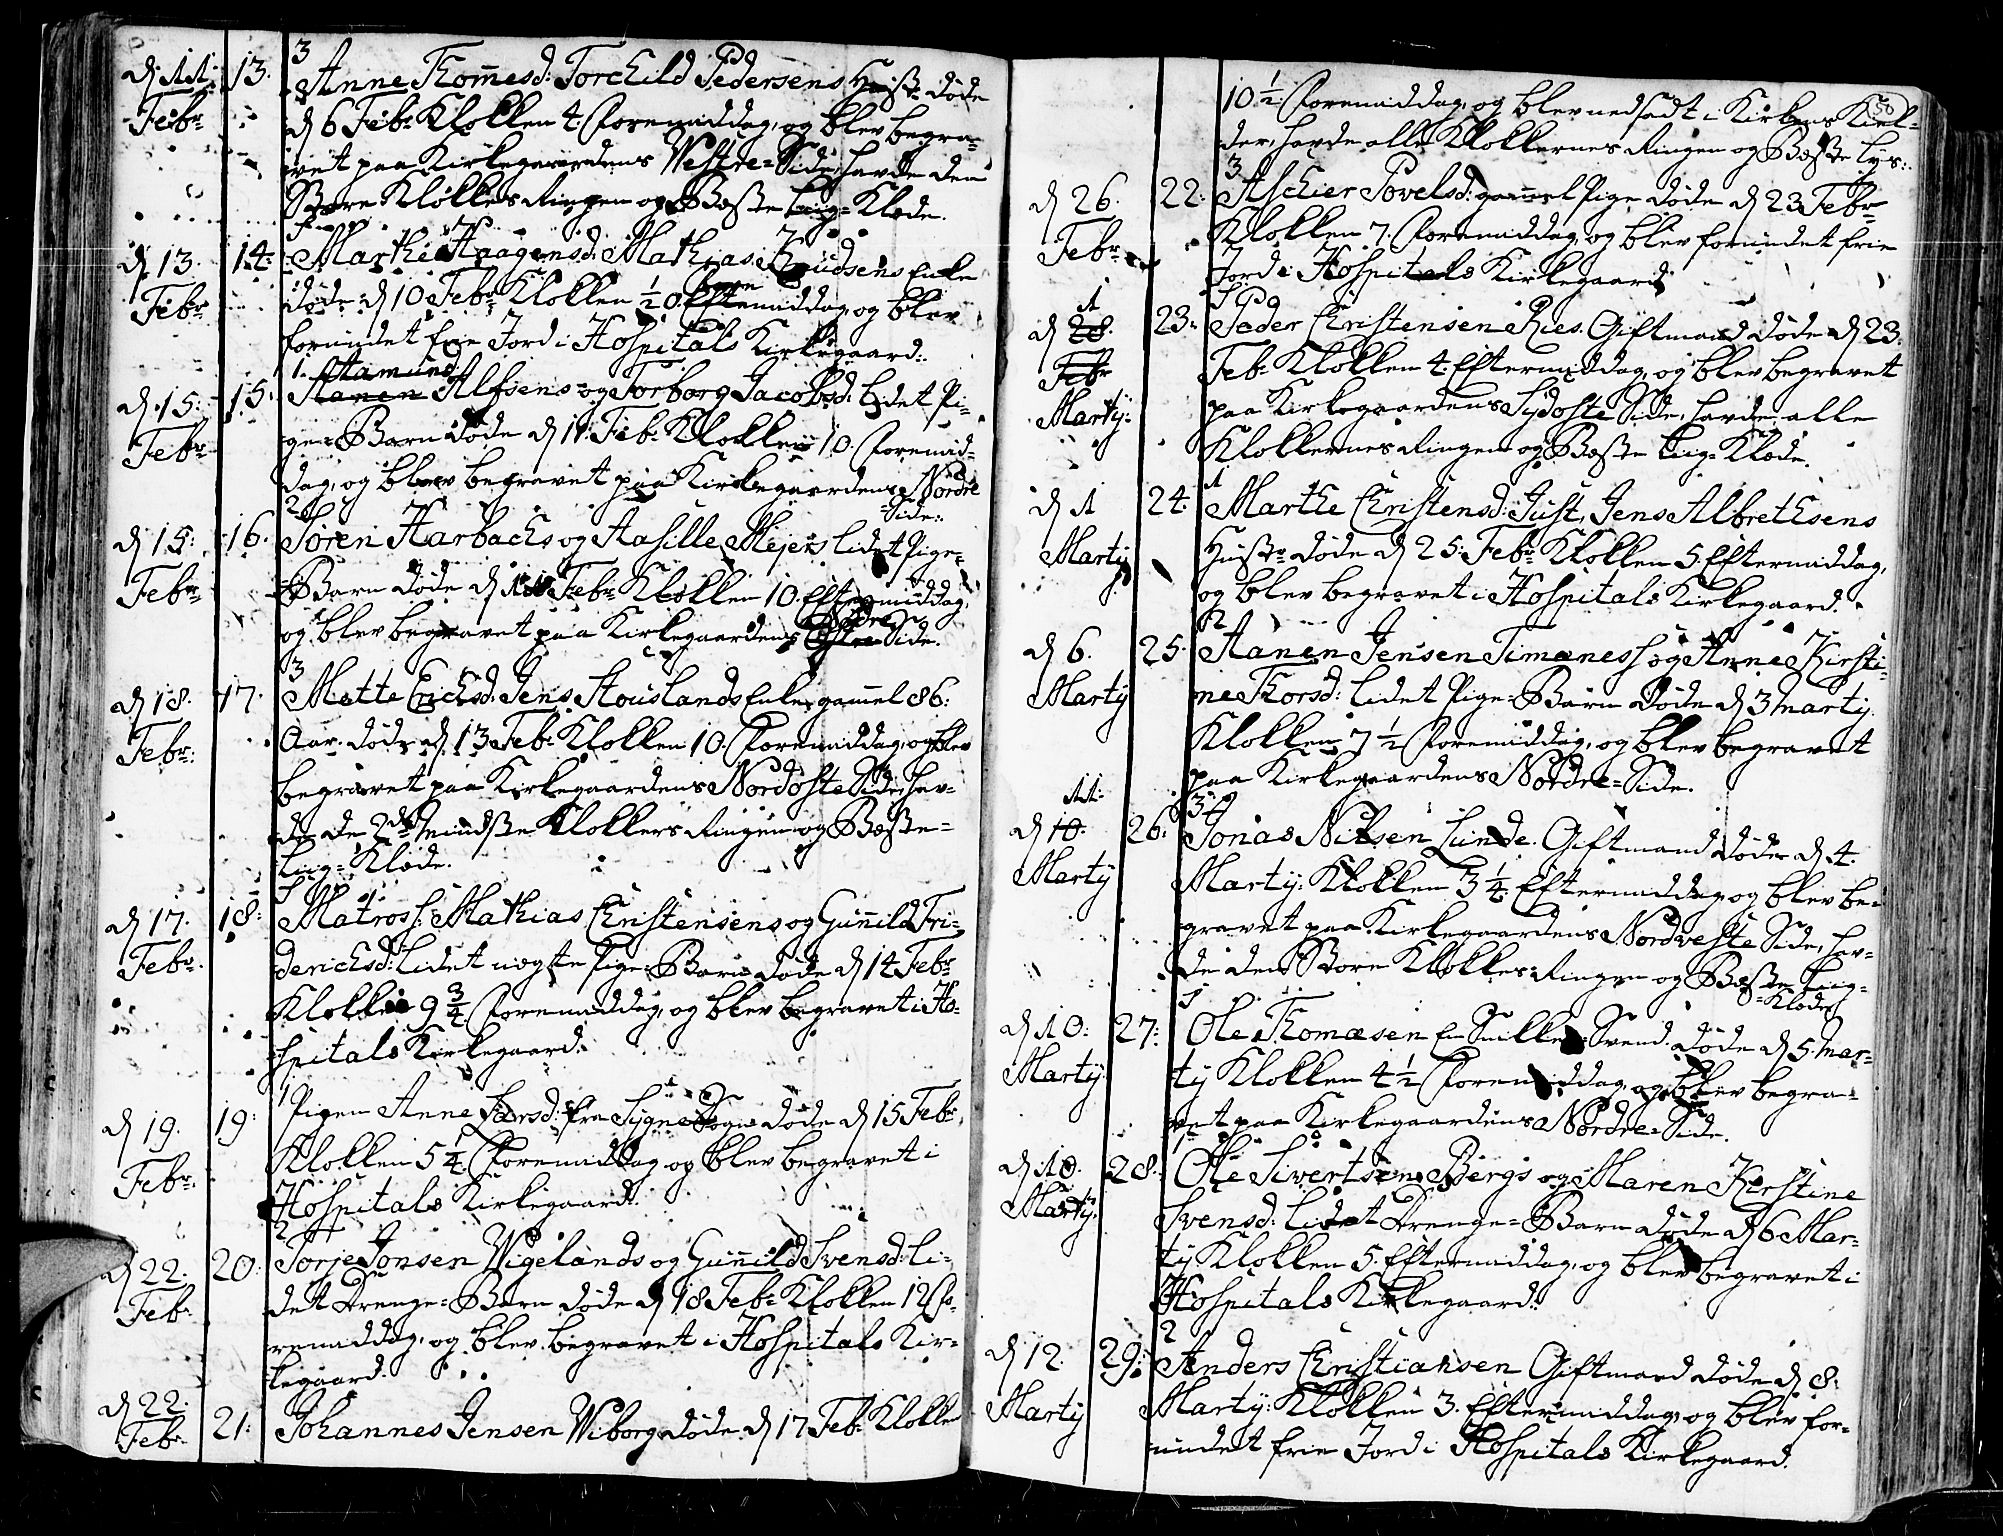 d 11. 13. 3 Anne Thomesd: Torchild Pedersens Hustr: døde
Febr: d 6 Febr: Klokken 4. Foremiddag, og blev begra-
vet paa Kirkegaardens Vestre-Side, havde den
Store Klokkes Ringen og Beste Liig-Klæde.
d 13. 14: Marthe Haagensd: Mathias Knudsens Enke
Febr: døde d 10 Febr: Klokken ½ 0. Eftermiddag, og blev
forundet frie Jord i Hospitals Kirkegaard.
1. Aamund
d 15: 15: Aanen Alfsens og Torborg Jacobsd: Lidet Pi-
Febr: ge-Barn døde d 11 Feb: Klokken 10. Foremid-
dag, og blev begravet paa Kirkegaardens Nordre
-Side:
2
d 15: 16. Søren Harbachs og Aasille Mejers lidet Pige-
Febr: Barn døde d 11 Febr: Klokken 10. Eftermiddag,
og blev begravet paa Kirkegaardens Østre Side.
3
d 18. 17. Mette Erichsd: Jens Stouslands Enke, gamel 86:
Febr: Aar. døde d 13 Feb: Klokken 10. Foremiddag, og blev
begravet paa Kirkegaardens Nordoste Side, hav-
de de 2de Mindste Klokkers Ringen og Beste-
Liig-Klæde.
d 17. 18: Matros: Mathias Christensens og Gunild Fri-
Febr. derichsd: Lidet uegte Pige-Barn døde d 14 Febr
Klokken 9 ¾ Foremiddag, og blev begravet i Ho-
spitals Kirkegaard.
1
d 19. 19: Pigen Anne Larsd: fra Sygne Sogn døde d 15 Febr.
Febr: Klokken 5 ¼ Foremiddag og blev begravet i
Hospitals Kirkegaard.
2
d 22. 20: Torje Jonsen Wigelands og Gunild Svensd: Li-
Feb: det Drenge-Barn døde d 18 Feb: Klokken 12 Fo-
remiddag, og blev begravet i Hospitals Kir-
kegaard.
d 22. 21: Johannes Jensen Wiborg døde d 17 Feb: Klokken
Feb:
50
10 ½ Foremiddag, og blev nedsadt i Kirkens Kiel-
der, havde alle Klokkernes Ringen og Beste Lys:
3
d 26. 22: Aschier Povelsd: gammel Pige døde d 23 Febr
Febr: Klokken 7. Foremiddag, og blev forundet frie
Jord i Hospitals Kirkegaard
1
d 28. 23: Peder Christensen Ries. Giftmand døde d 23.
Febr Feb: Klokken 4. Eftermiddag, og blev begravet
Marty: paa Kirkegaardens Sydoste Side, havde alle
Klokkernes Ringen og Beste Liig-Klæde.
1
d 1 24: Marthe Christensd: Just, Jens Albrethsens
Marty Hustr: døde d 25: Febr: Klokken 5. Eftermiddag,
og blev begravet i Hospitals Kirkegaard.
2
d 6. 25. Aanen Jensen Timenes og Anne Kirsti-
Marty ne Thorsd: Lidet Pige-Barn døde d 3 Marty
Klokken 7 ½ Foremiddag, og blev begravet
paa Kirkegaardens Nordre-Side.
11: 3
d 10. 26: Jonas Nilsen Lunde. Giftmand døde d 4.
Marty Marty: Klokken 3 ¼. Eftermiddag og blev be-
gravet paa Kirkegaardens Nordveste Side, hav-
de den Store Klokkes Ringen og Beste Liig-
-Klæde
d 10: 27: Ole Thomæsen En Svend. døde d 5. Mar-
Marty. ty Klokken 4 ½ Foremiddag, og blev begra-
vet paa Kirkegaardens Nordre-Side.
d 10. 28: Ole Sivertsens Bergs og Maren Kirstine
Marty. Svensd: Lidet Drenge-Barn døde d 6 Mar-
ty Klokken 5. Eftermiddag, og blev begravet i
Hospitals Kirkegaard:
2
d 12. 29: Anders Christiansen Giftmand døde d 8.
Marty Marty: Klokken 3. Eftermiddag, og blev for-
undet frie Jord i Hospitals Kirkegaard.